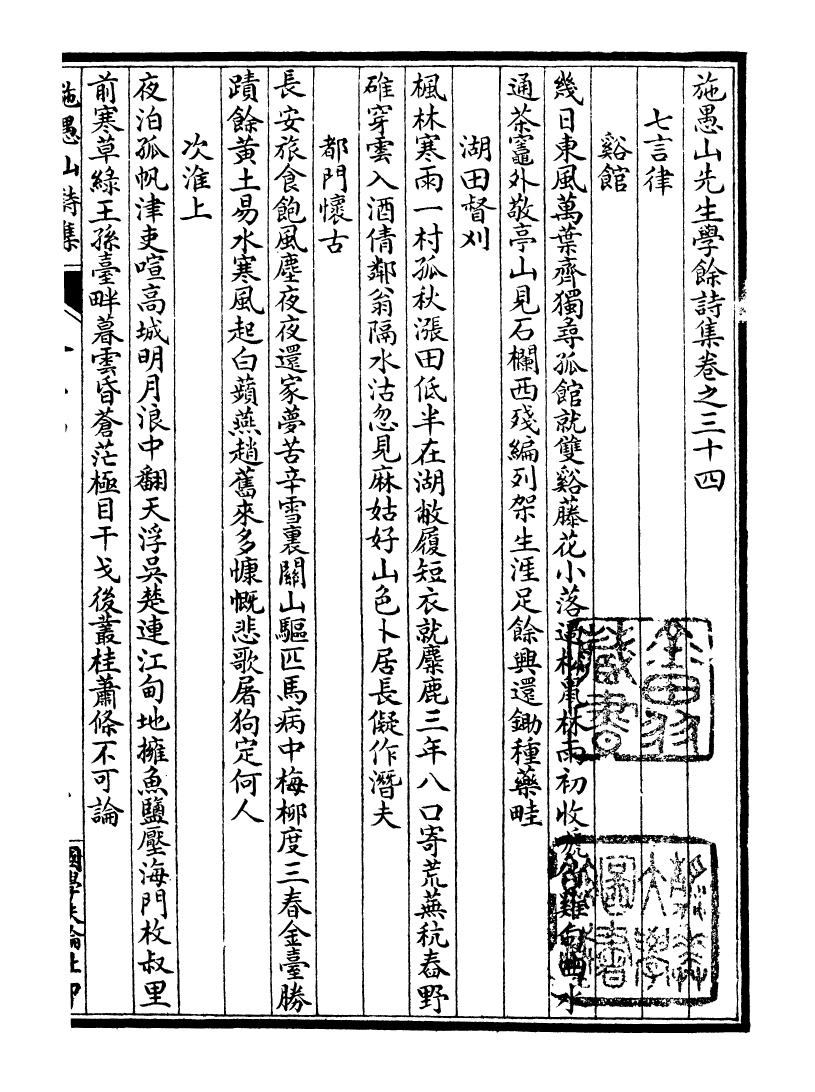 施愚山先生學餘詩集卷之三十四
七言律
谿館
幾日東風萬葉齊獨尋孤館就雙谿藤花小落過松鼠林雨初收號竹雞向幽水
通茶竈外敬亭山見石欄西殘編列架生涯足餘興還鋤種藥畦
湖田督刈
楓林寒雨一村孤秋漲田低半在湖敝履短衣就麋鹿三年八口寄荒蕪秔舂野
碓穿雲入酒倩鄰翁隔水沽忽見麻姑好山色卜居長儗作潛夫
都門懷古
長安旅食飽風塵夜夜還家夢苦辛雪裏關山驅匹馬病中梅柳度三春金臺勝
蹟餘黃土易水寒風起白蘋燕趙舊來多慷慨悲歌屠狗定何人
次淮上
夜泊孤帆津吏喧高城明月浪中翻天浮吳楚連江甸地擁魚鹽壓海門枚叔里
前寒草綠王孫臺畔暮雲昏蒼茫極目干戈後叢桂蕭條不可論
施愚山詩集
國學扶輪社印